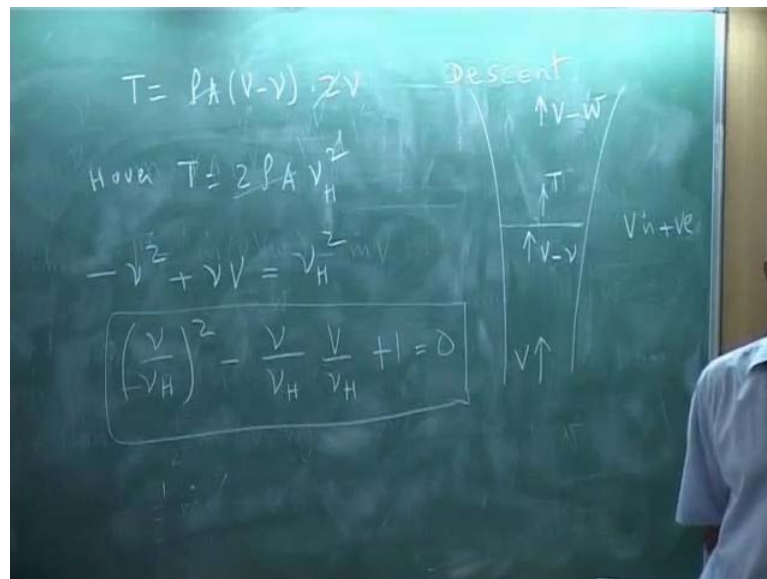 T = ρA(V-ν) . 2ν
Hover T = 2ρA ν_H^2
- ν^2 + νV = ν_H^2
(ν/ν_H)^2 - ν/ν_H V/ν_H + 1 = 0
Descent
↑V-w
↑T
↑V-ν
V↑
V is +ve